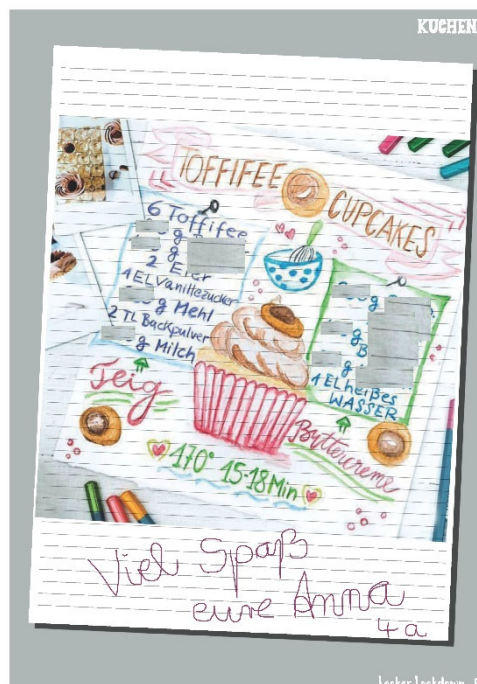 KUCHEN
TOFFIFEE
CUPCAKES
6 Toffifee
g
g
2 Eier
1 EL Vanillezucker
g Mehl
2 TL Backpulver
g Milch
Teig
g
g
B
g
1 EL heißes
WASSER
Buttercreme
170° 15-18 Min
Viel Spaß
eure Anna
4a
Lecker Lockdown